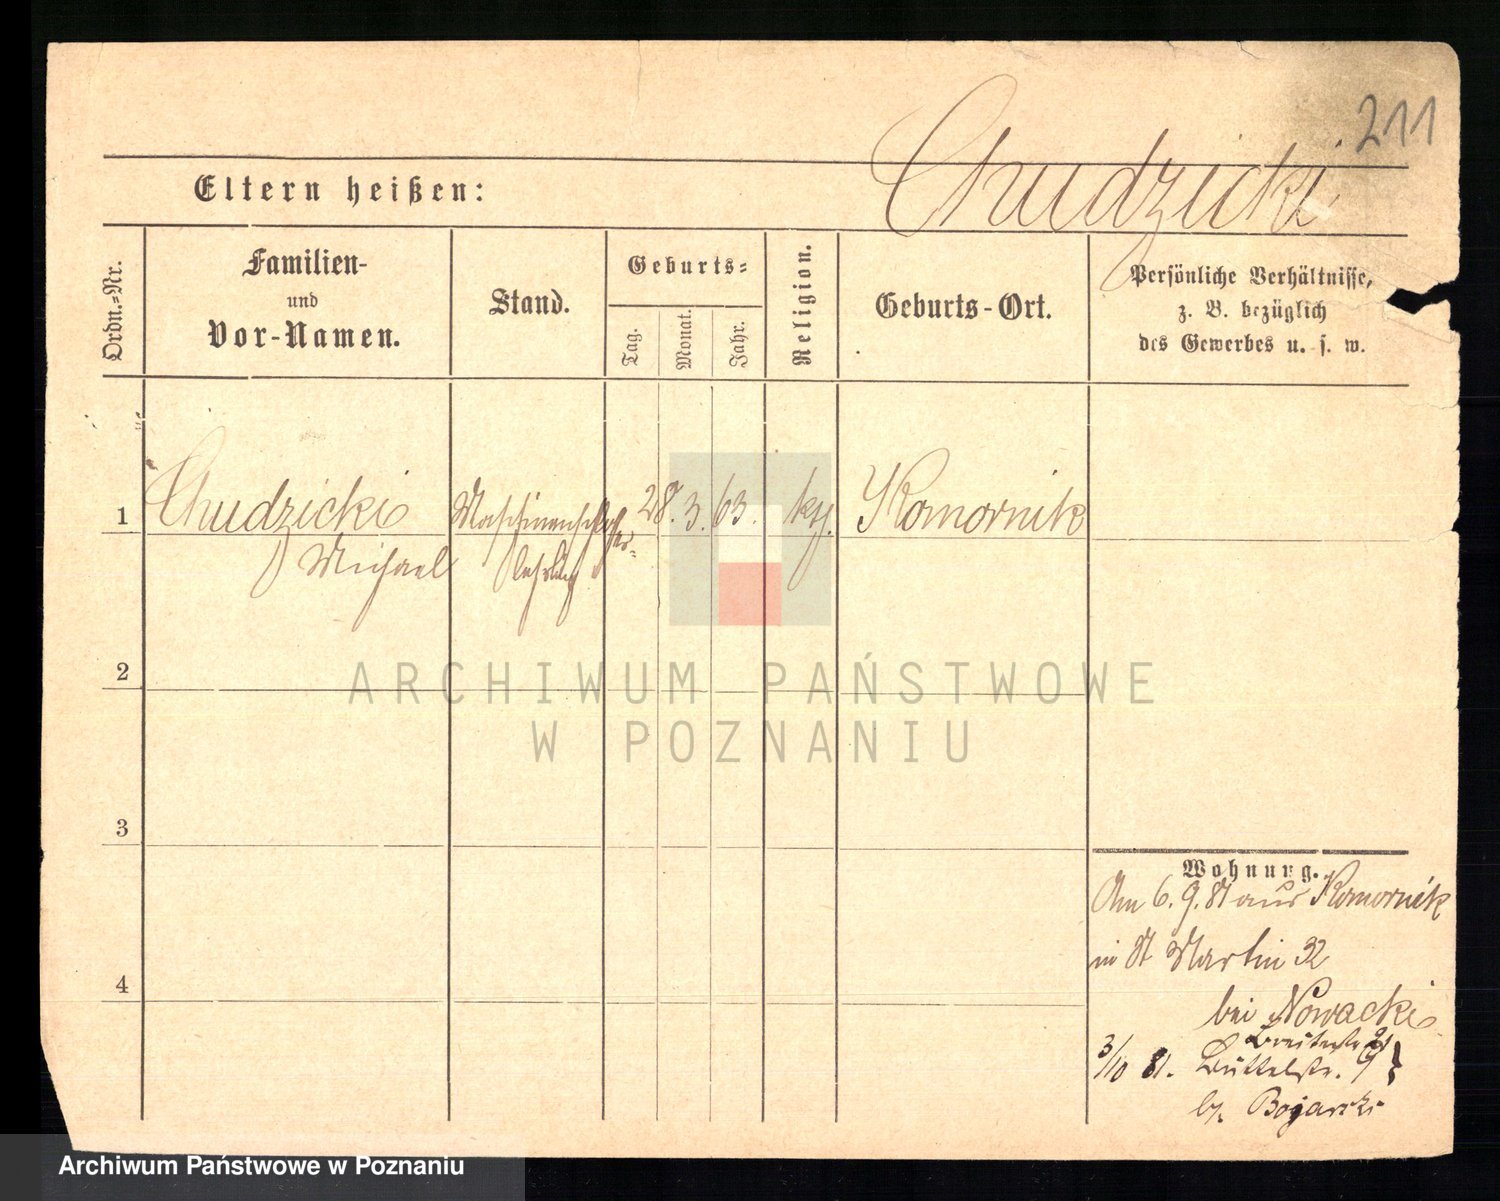 211
Chudzicki
Eltern heißen:
Ordn.-Nr.
Familien-
und
Vor-Namen.
Stand.
Geburts-
Tag.
Monat.
Jahr.
Religion.
Geburts-Ort.
Persönliche Verhältnisse,
z. B. bezüglich
des Gewerbes u. s. w.
1
Chudzicki
Michael
Maschinenschlosser-
lehrling
28. 3. 63.
kth.
Komornik
2
3
4
Wohnung.
Am 6. 9. 81 aus Komornik
in St Martin 32
bei Nowacki
Breitestr 21
3/10 81. Büttelstr. 9 }
b/. Bogarski
ARCHIWUM PAŃSTWOWE
W POZNANIU
Archiwum Państwowe w Poznaniu